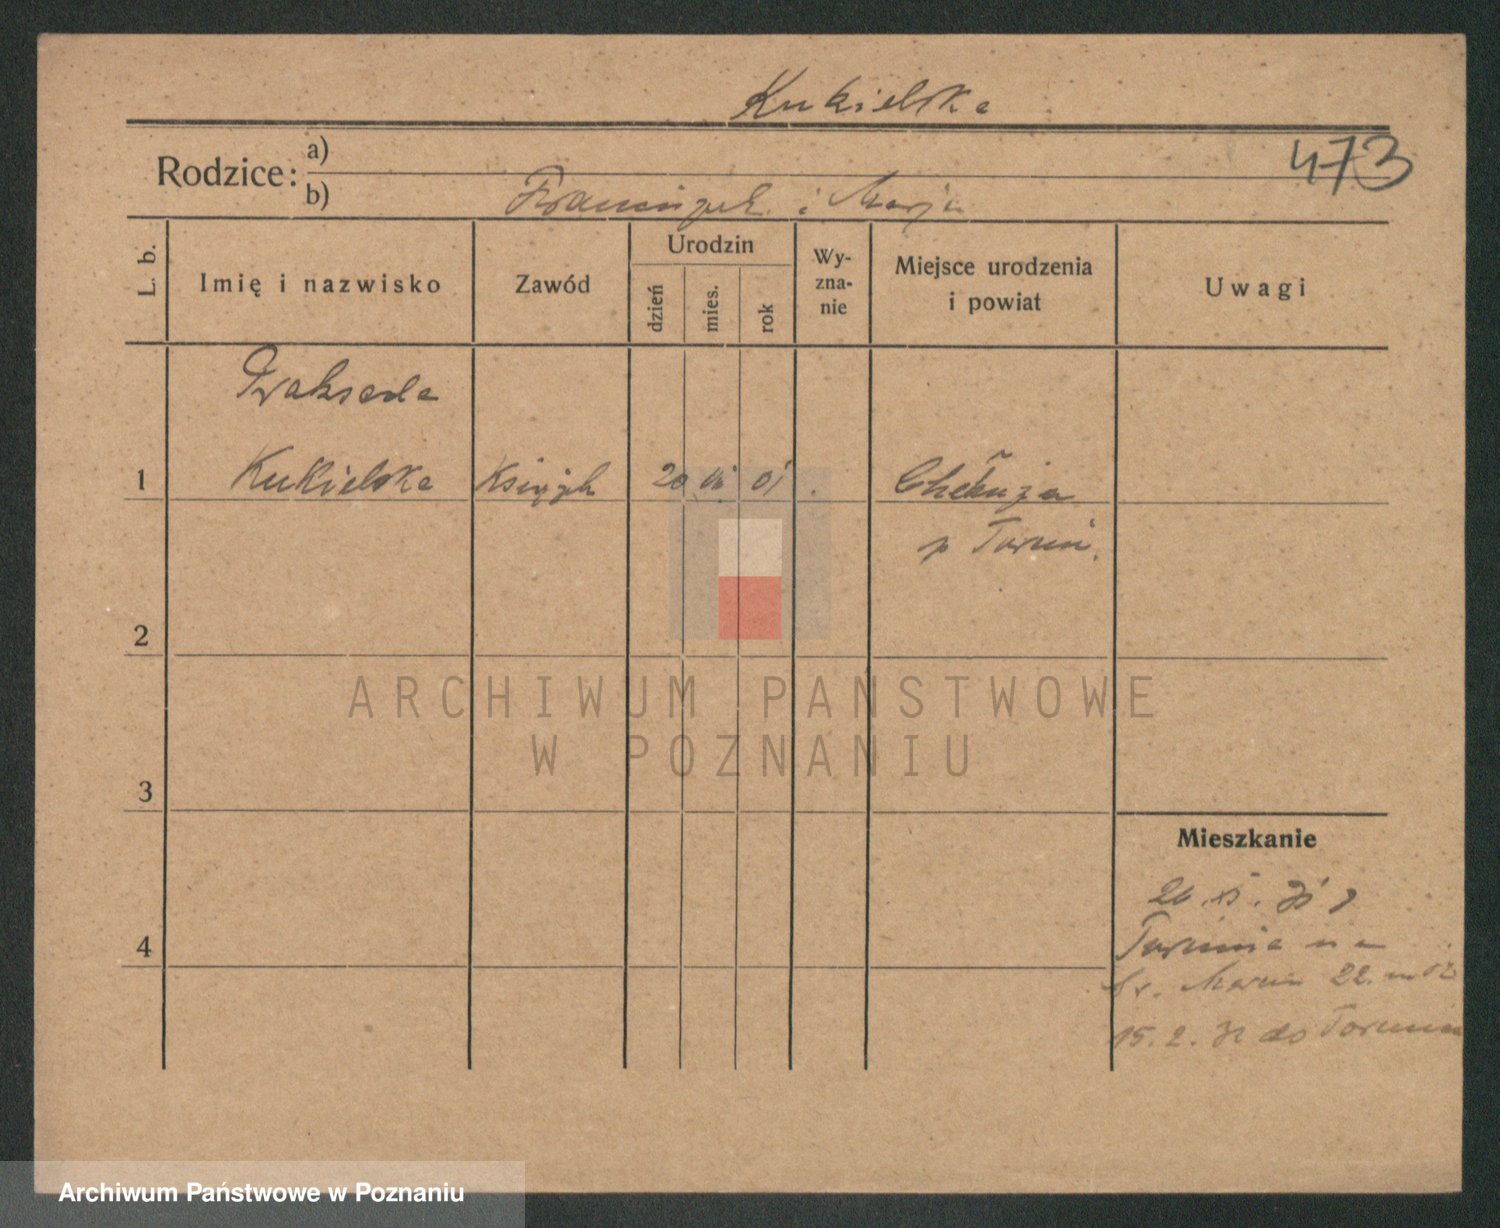 Kukielska
473
Rodzice: a)
b) Franciszek i Marja
L. b.
Imię i nazwisko
Zawód
Urodzin
dzień
mies.
rok
Wy-
zna-
nie
Miejsce urodzenia
i powiat
Uwagi
Prakseda
1 Kukielska Książk 20 VII 01
p Toruń.
2
3
4
Mieszkanie
20. XI. 31 z
Torunia na
Św. Marcin 22. m
15. 2. 32 do Torunia
ARCHIWUM PAŃSTWOWE
W POZNANIU
Archiwum Państwowe w Poznaniu